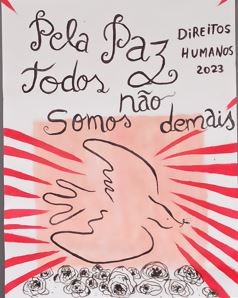 Pela Paz
DiREiTOS
HUMANOS
2023
todos
não
Somos demais